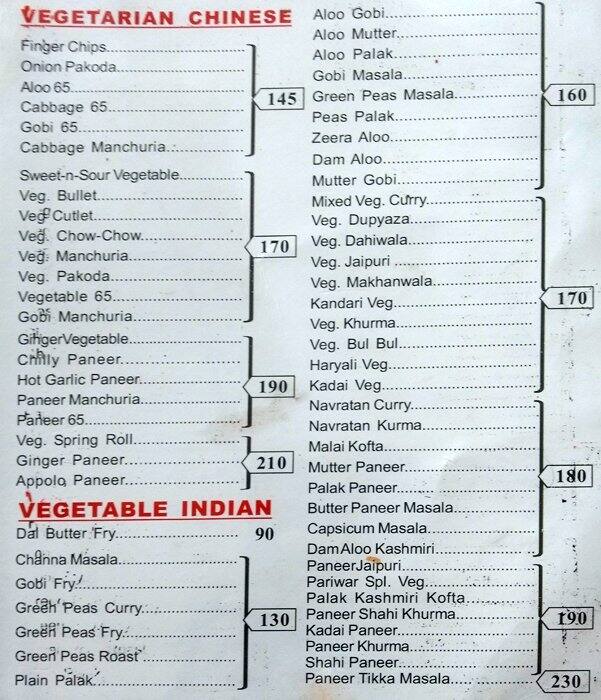 VEGETARIAN CHINESE
Finger Chips
Onion Pakoda
Aloo 65
Cabbage 65
Gobi 65
Cabbage Manchuria
145
Sweet-n-Sour Vegetable
Veg. Bullet
Veg Cutlet
Veg. Chow-Chow
Veg. Manchuria
Veg. Pakoda
Vegetable 65
Gobi Manchuria
170
GingerVegetable
Chilly Paneer
Hot Garlic Paneer
Paneer Manchuria
Paneer 65
190
Veg. Spring Roll
Ginger Paneer
Appolo Paneer
210
VEGETABLE INDIAN
Dal Butter Fry 90
Channa Masala
Gobi Fry
Green Peas Curry
Green Peas Fry
Green Peas Roast
Plain Palak
130
Aloo Gobi
Aloo Mutter
Aloo Palak
Gobi Masala
Green Peas Masala
Peas Palak
Zeera Aloo
Dam Aloo
Mutter Gobi
160
Mixed Veg. Curry
Veg. Dupyaza
Veg. Dahiwala
Veg. Jaipuri
Veg. Makhanwala
Kandari Veg
Veg. Khurma
Veg. Bul Bul
Haryali Veg
Kadai Veg
170
Navratan Curry
Navratan Kurma
Malai Kofta
Mutter Paneer
Palak Paneer
Butter Paneer Masala
Capsicum Masala
DamAloo Kashmiri
180
PaneerJaipuri
Pariwar Spl. Veg
Palak Kashmiri Kofta
Paneer Shahi Khurma
Kadai Paneer
Paneer Khurma
Shahi Paneer
190
Paneer Tikka Masala 230